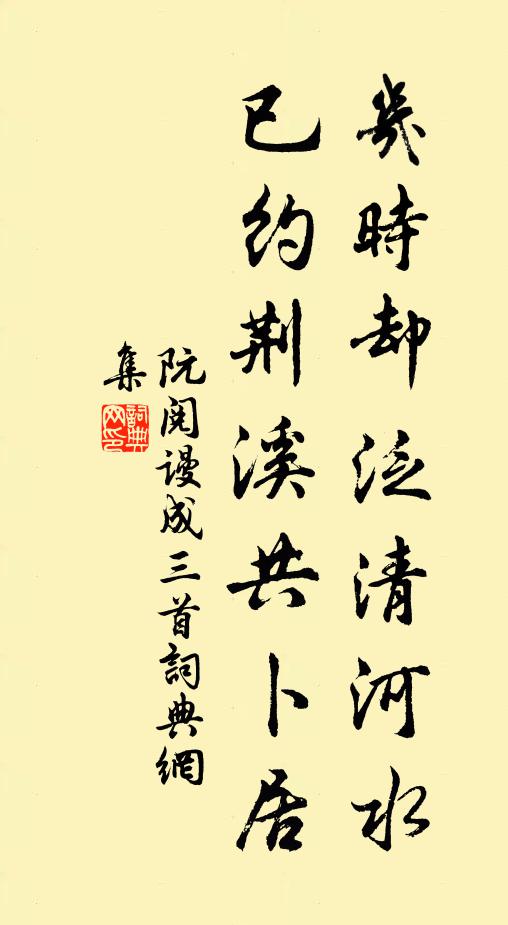 幾時却泛清河水
已約荆溪共卜居
阮閱謾成三首詞典網
集
詞典
网印